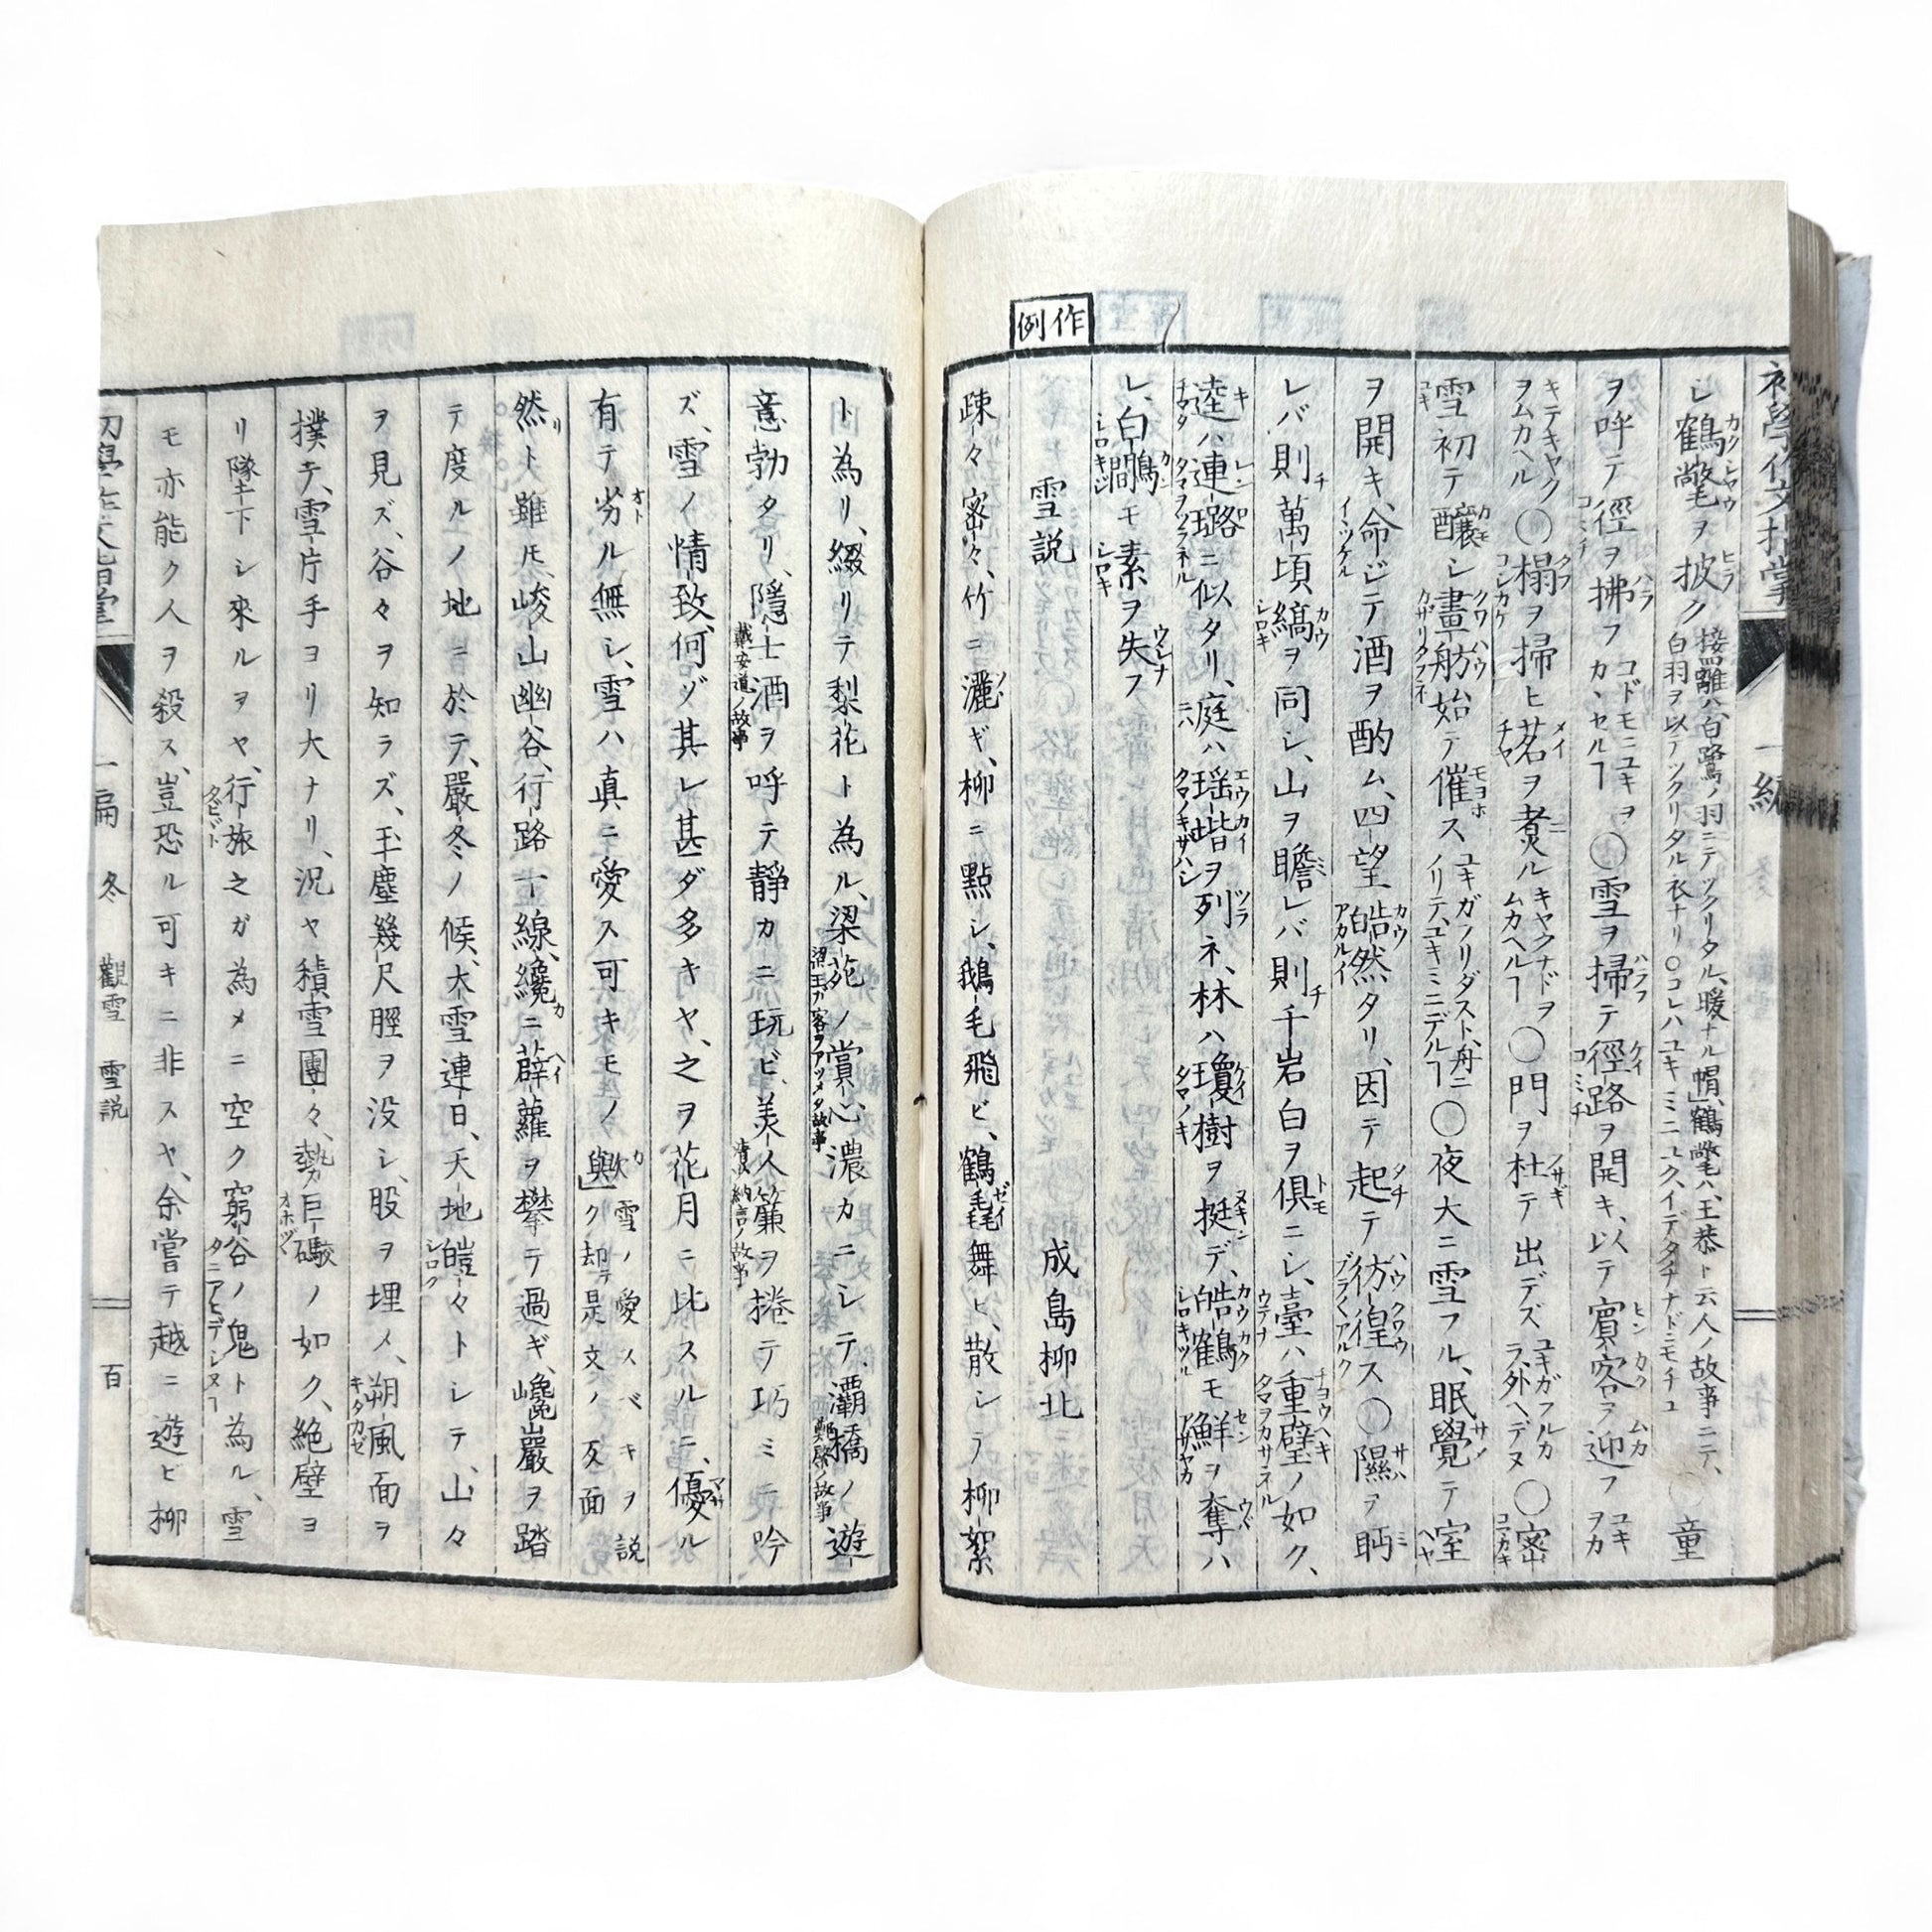 初學作文指掌
一編
シ鶴氅ヲ披ク接䍦ハ、白鷺ノ羽ニテツクリタル、暖ナル帽、鶴氅ハ、王恭ト云人ノ故事ニテ、白羽ヲ以テツクリタル衣ナリ○コレハユキミニユク、イデタチナドニモチユ○童
ヲ呼テ徑ヲ拂フコドモニユキヲカヽセルヿ○雪ヲ掃テ徑路ヲ開キ、以テ賓客ヲ迎フユキヲカ
キテキャクヲムカヘル○榻ヲ掃ヒ茗ヲ煮ルキヤクナドヲムカヘルヿ○門ヲ杜テ出デズユキガフルカラ、外ヘデヌ○密
雪初テ釀シ畫舫始テ催スユキガノリダスト、舟ニノリテ、ユキミニデルヿ○夜大ニ雪フル、眠覺テ室
ヲ開キ、命ジテ酒ヲ酌ム、四望皓然タリ、因テ起テ彷徨ス○隰ヲ眄
レバ則萬頃縞ヲ同シ、山ヲ瞻レバ則千岩白ヲ倶ニシ、臺ハ重璧ノ如ク、
逵ハ連璐ニ似タリ、庭ハ瑶堦ヲ列ネ、林ハ瓊樹ヲ挺デ、皓鶴モ鮮ヲ奪ハ
レ、白鷴モ素ヲ失フ
作例
雪説　成島柳北
疎々密々、竹ニ灑ギ、柳ニ點シ、鵝毛飛ビ、鶴毳舞ヒ、散シテ柳絮
ト為リ、綴リテ梨花ト為ル、梁苑梁王ガ客ヲアツメタ故事ノ賞心濃カニシテ、灞橋鄭綮ノ故事ノ遊
意勃タリ、隱士戴安道ノ故事酒ヲ呼テ靜カニ玩ビ、美人清少納言ノ故事簾ヲ捲テ巧ミニ吟
ズ、雪ノ情致、何ゾ其レ甚ダ多キヤ、之ヲ花月ニ比スルニ、優ル
有テ劣ル無シ、雪ハ真ニ愛ス可キモノ歟雪ノ愛スベキヲ説ク却テ是文ノ反面
然ト雖モ峻山幽谷、行路一線、纔ニ薜蘿ヲ攀テ過ギ、巉巖ヲ踏
テ度ルノ地ニ於テ、嚴冬ノ候、大雪連日、天地皚々トシテ、山々
ヲ見ズ、谷々ヲ知ラズ、玉塵幾尺脛ヲ没シ、股ヲ埋メ、朔風面ヲ
撲チ、雪片手ヨリ大ナリ、況ヤ積雪團々、勢ヒ巨礮ノ如ク、絶壁ヨ
リ隊チ下シ來ルヲヤ、行旅之ガ為メニ空ク窮谷ノ鬼ト為ル、雪
モ亦能ク人ヲ殺ス、豈恐ル可キニ非スヤ、余嘗テ越ニ遊ビ柳
一扁　冬　觀雪　雪説　百